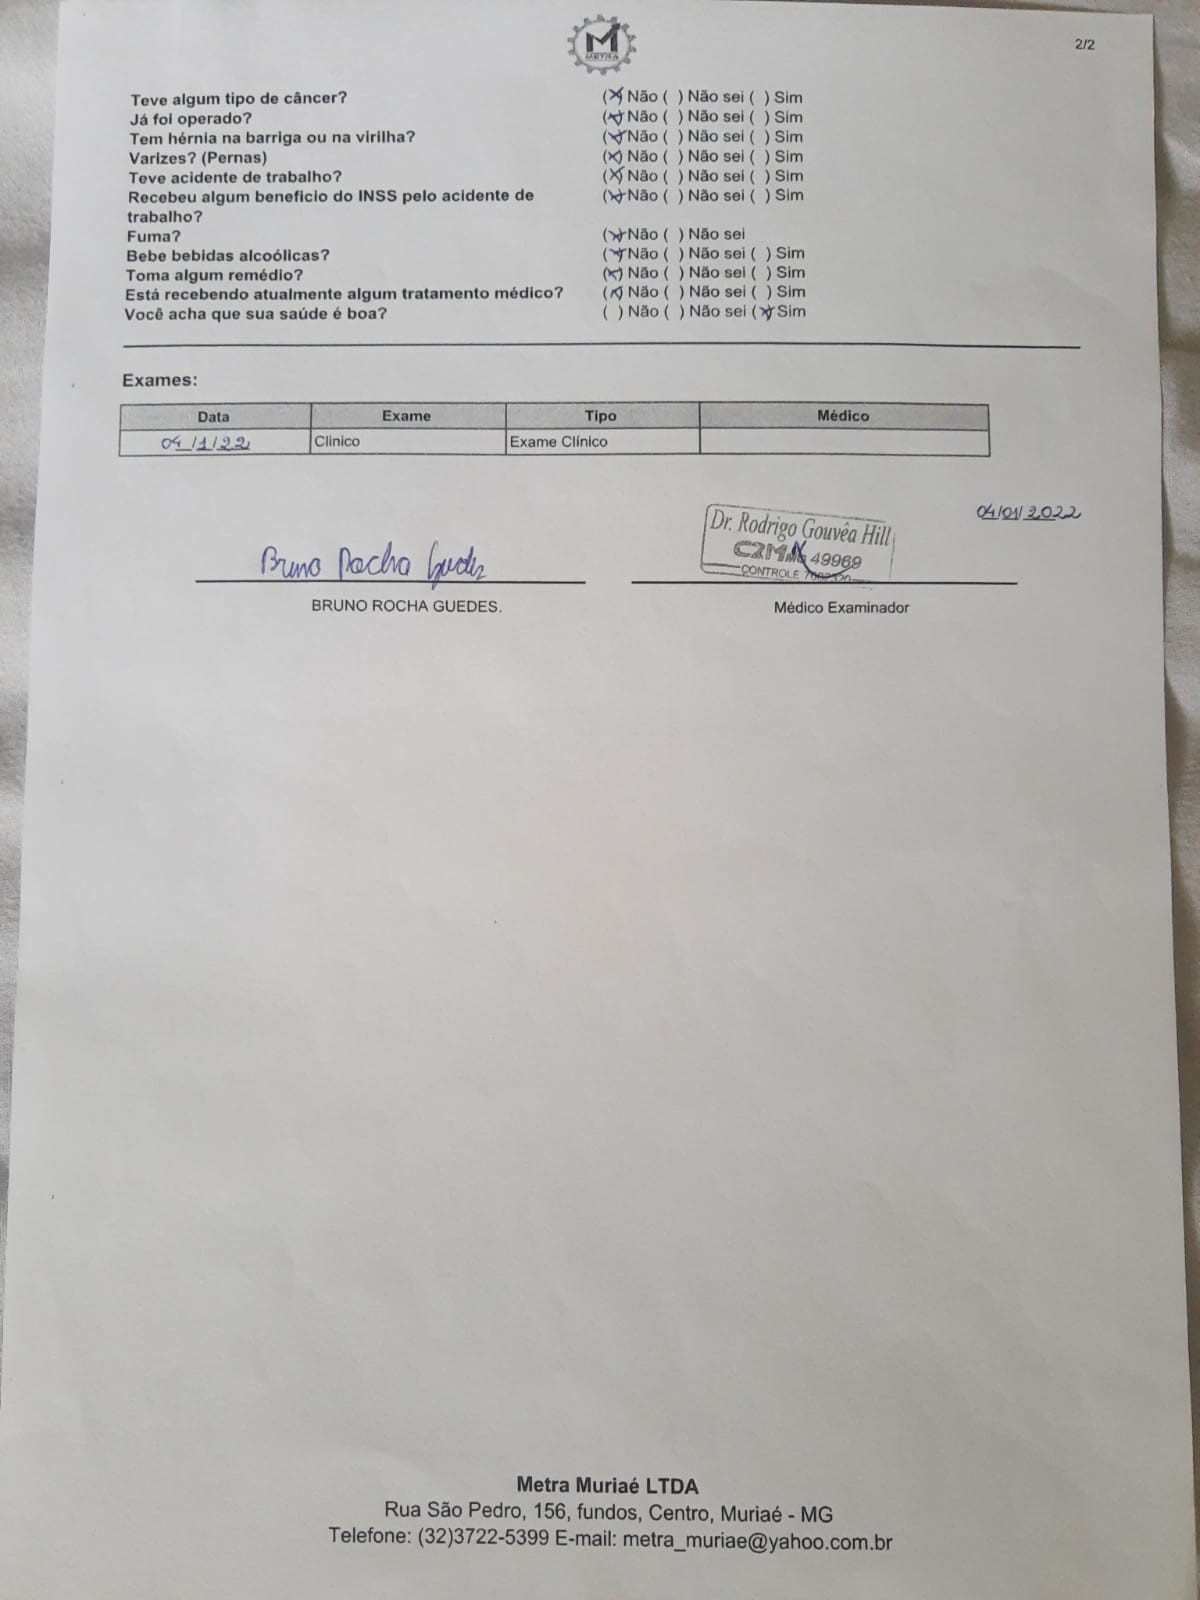 M
METRA
2/2
Teve algum tipo de câncer? (X) Não ( ) Não sei ( ) Sim
Já foi operado? (X) Não ( ) Não sei ( ) Sim
Tem hérnia na barriga ou na virilha? (X) Não ( ) Não sei ( ) Sim
Varizes? (Pernas) (X) Não ( ) Não sei ( ) Sim
Teve acidente de trabalho? (X) Não ( ) Não sei ( ) Sim
Recebeu algum beneficio do INSS pelo acidente de (X) Não ( ) Não sei ( ) Sim
trabalho?
Fuma? (X) Não ( ) Não sei
Bebe bebidas alcoólicas? (X) Não ( ) Não sei ( ) Sim
Toma algum remédio? (X) Não ( ) Não sei ( ) Sim
Está recebendo atualmente algum tratamento médico? (X) Não ( ) Não sei ( ) Sim
Você acha que sua saúde é boa? ( ) Não ( ) Não sei (X) Sim
Exames:
Data Exame Tipo Médico
04/1/22 Clinico Exame Clínico
04/01/2022
Dr. Rodrigo Gouvêa Hill
49969
CONTROLE
Bruno Rocha Guedes
BRUNO ROCHA GUEDES. Médico Examinador
Metra Muriaé LTDA
Rua São Pedro, 156, fundos, Centro, Muriaé - MG
Telefone: (32)3722-5399 E-mail: metra_muriae@yahoo.com.br